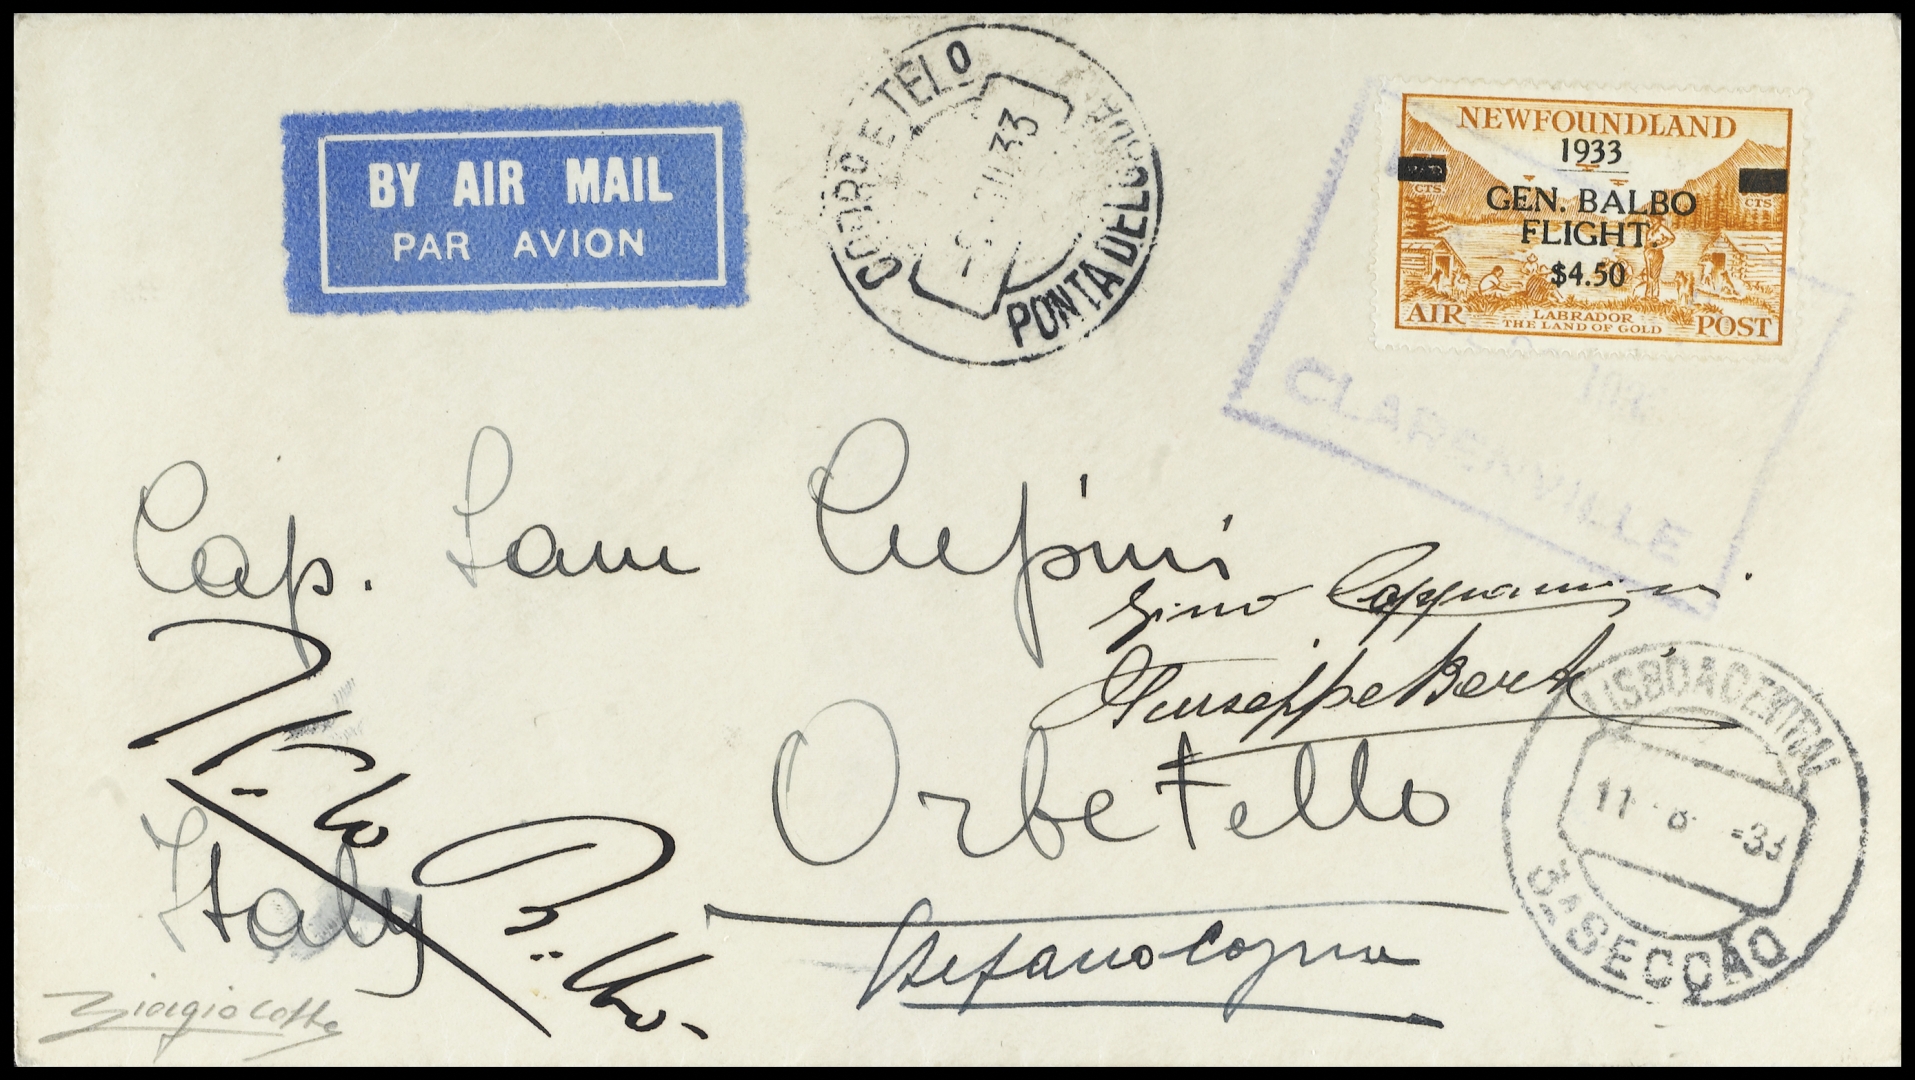 BY AIR MAIL
PAR AVION
CORREIO E TELO
PONTA DELGADA
33
NEWFOUNDLAND
1933
GEN. BALBO
FLIGHT,
$4.50
CTS.
CTS.
LABRADOR
THE LAND OF GOLD
AIR POST
CLARENVILLE
Cap.
Gino Cappannini
Giuseppe Berti
Orbetello
Italy
LISBOA CENTRAL
11 8 -33
3ª SECÇÃO
Stefano Cagna
Giorgio Colla